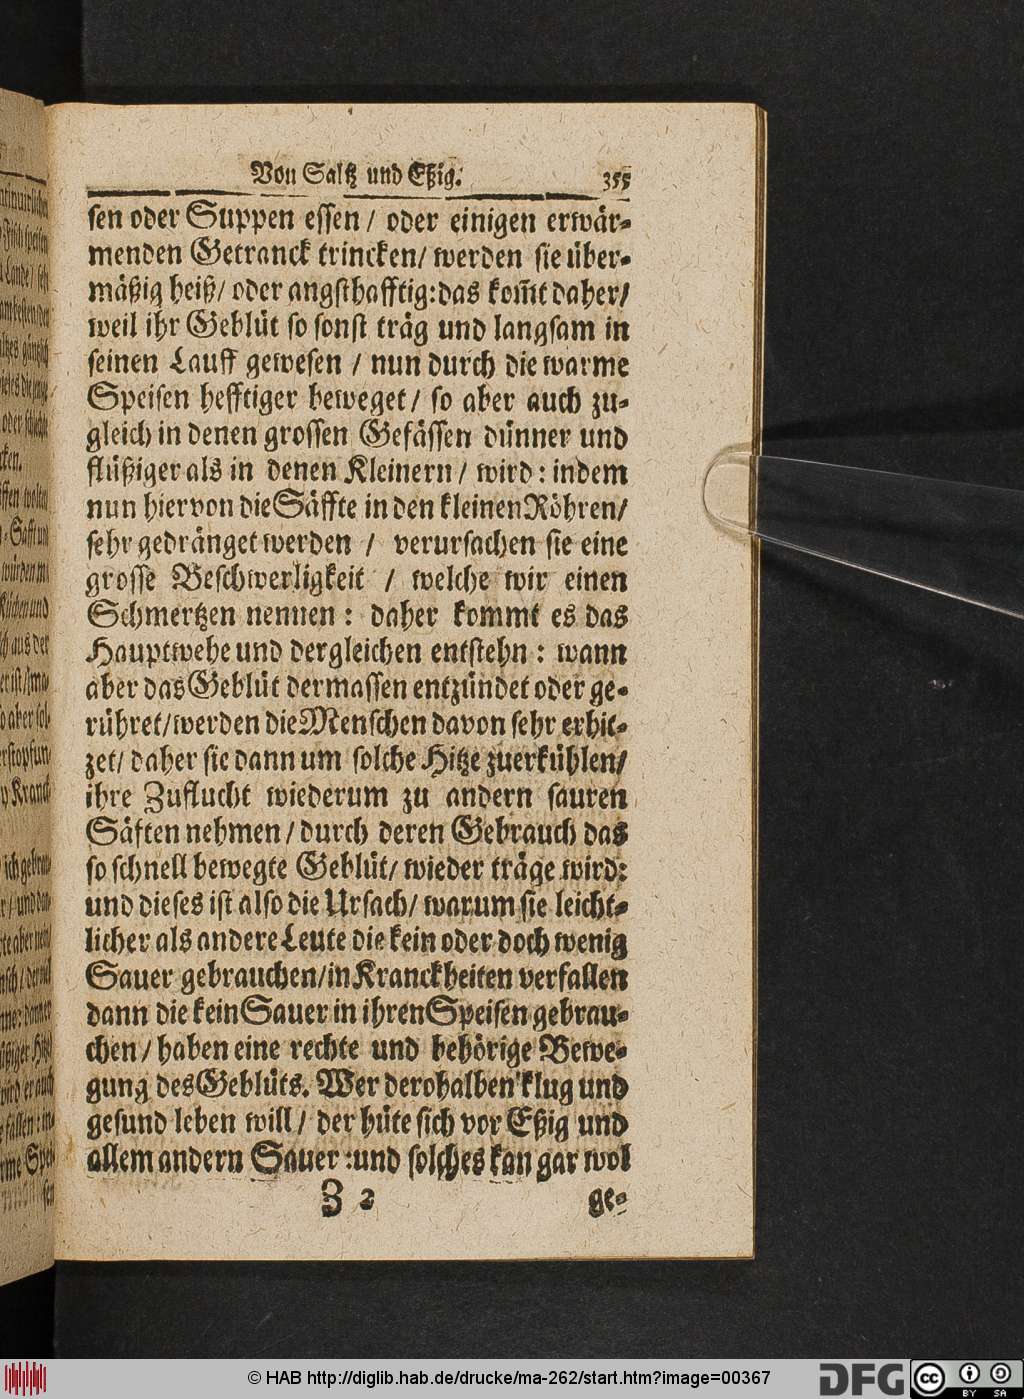 Von Saltz und Eßig. 355
sen oder Suppen essen / oder einigen erwär-
menden Getranck trincken / werden sie über-
mäßig heiß / oder angsthafftig: das kom̃t daher /
weil ihr Geblüt so sonst träg und langsam in
seinen Lauff gewesen / nun durch die warme
Speisen hefftiger beweget / so aber auch zu-
gleich in denen grossen Gefässen dünner und
flüßiger als in denen Kleinern / wird: indem
nun hiervon die Säffte in den kleinen Röhren /
sehr gedränget werden / verursachen sie eine
grosse Beschwerligkeit / welche wir einen
Schmertzen nennen: daher kommt es das
Hauptwehe und dergleichen entstehn: wann
aber das Geblüt dermassen entzündet oder ge-
rühret / werden die Menschen davon sehr erhit-
zet / daher sie dann um solche Hitze zuerkühlen /
ihre Zuflucht wiederum zu andern sauren
Säften nehmen / durch deren Gebrauch das
so schnell bewegte Geblüt / wieder träge wird:
und dieses ist also die Ursach / warum sie leicht-
licher als andere Leute die kein oder doch wenig
Sauer gebrauchen / in Kranckheiten verfallen
dann die kein Sauer in ihren Speisen gebrau-
chen / haben eine rechte und behörige Bewe-
gung des Geblüts. Wer derohalben klug und
gesund leben will / der hüte sich vor Eßig und
allem andern Sauer: und solches kan gar wol
Z 2 ge-
© HAB http://diglib.hab.de/drucke/ma-262/start.htm?image=00367
DFG
cc BY SA